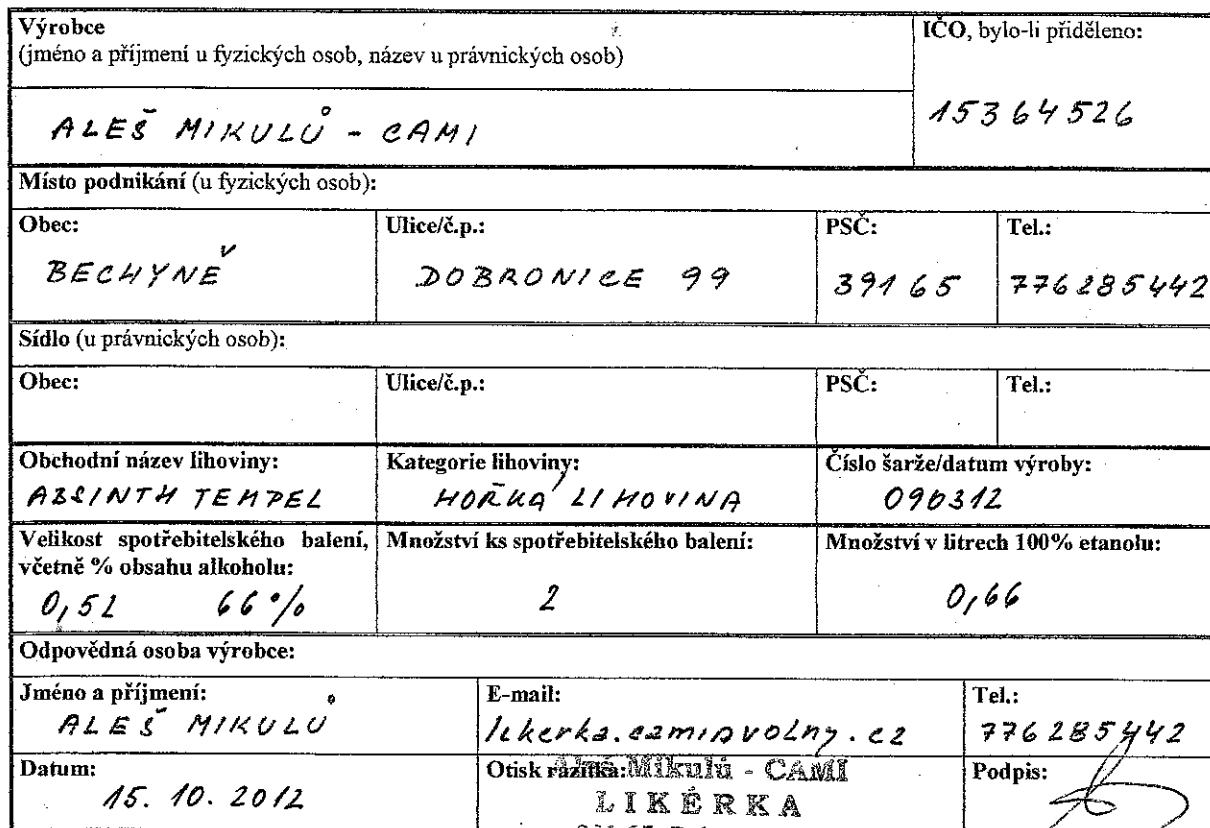 Výrobce
(jméno a příjmení u fyzických osob, název u právnických osob)
IČO, bylo-li přiděleno:
ALEŠ MIKULŮ - CAMI
15364526
Místo podnikání (u fyzických osob):
Obec:
Ulice/č.p.:
PSČ:
Tel.:
BECHYNĚ
DOBRONICE 99
39165
776285442
Sídlo (u právnických osob):
Obec:
Ulice/č.p.:
PSČ:
Tel.:
Obchodní název lihoviny:
Kategorie lihoviny:
Číslo šarže/datum výroby:
ABSINTH TEMPEL
HOŘKÁ LIHOVINA
090312
Velikost spotřebitelského balení,
včetně % obsahu alkoholu:
Množství ks spotřebitelského balení:
Množství v litrech 100% etanolu:
0,5L 66%
2
0,66
Odpovědná osoba výrobce:
Jméno a příjmení:
E-mail:
Tel.:
ALEŠ MIKULŮ
776285442
Datum:
Otisk razítka:
Podpis:
Aleš Mikulů - CAMI
15. 10. 2012
LIKÉRKA